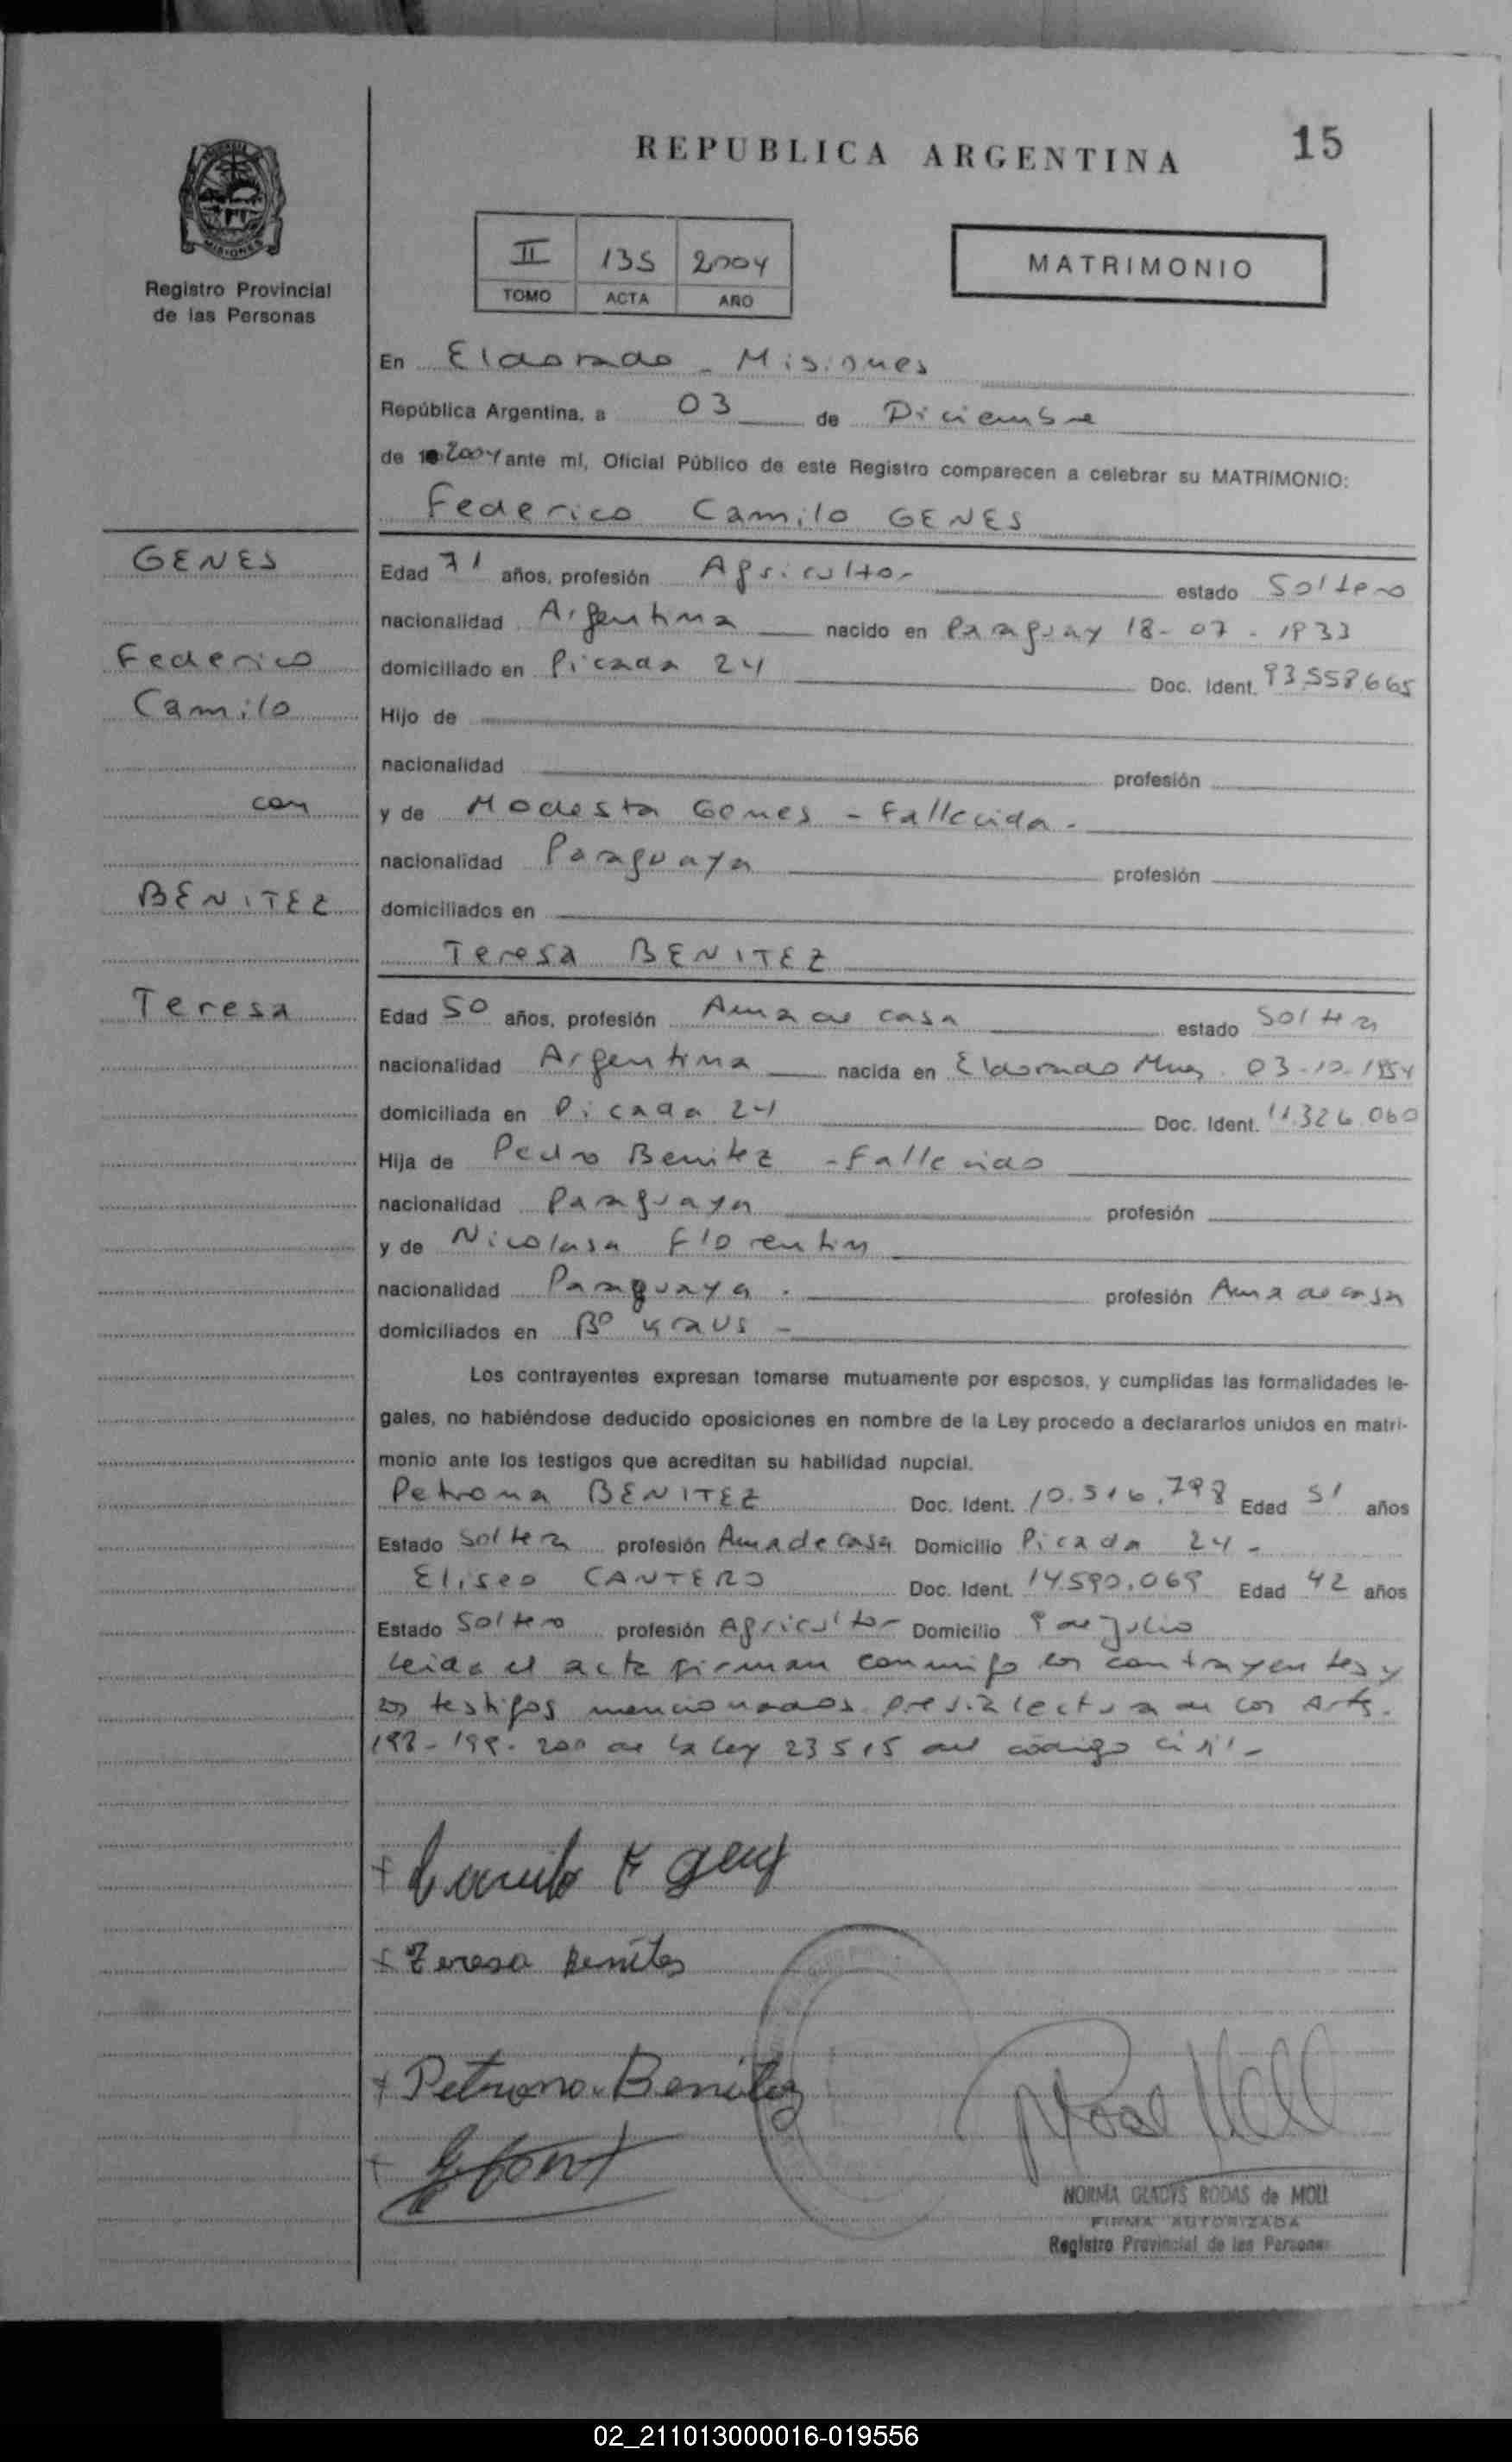 REPUBLICA ARGENTINA
15
II 135 2004
TOMO ACTA AÑO
MATRIMONIO
Registro Provincial
de las Personas
En Eldorado - Misiones
República Argentina, a 03 de Diciembre
de 2004 ante mí, Oficial Público de este Registro comparecen a celebrar su MATRIMONIO:
Federico Camilo GENES
GENES
Federico
Camilo
con
BENITEZ
Teresa
Edad 71 años, profesión Agricultor estado Soltero
nacionalidad Argentina nacido en Paraguay 18-07-1933
domiciliado en Picada 24 Doc. Ident. 93.558.665
Hijo de
nacionalidad profesión
y de Modesta Genes - Fallecida -
nacionalidad Paraguaya profesión
domiciliados en
Teresa BENITEZ
Edad 50 años, profesión Ama de casa estado Soltera
nacionalidad Argentina nacida en Eldorado Mnes 03-10-1954
domiciliada en Picada 24 Doc. Ident. 11.326.060
Hija de Pedro Benitez - Fallecido
nacionalidad Paraguaya profesión
y de Nicolasa Florentin
nacionalidad Paraguaya - profesión Ama de casa
domiciliados en Bº -
Los contrayentes expresan tomarse mutuamente por esposos, y cumplidas las formalidades le-
gales, no habiéndose deducido oposiciones en nombre de la Ley procedo a declararlos unidos en matri-
monio ante los testigos que acreditan su habilidad nupcial.
Petrona BENITEZ Doc. Ident. 10.516.798 Edad 51 años
Estado Soltera profesión Ama de casa Domicilio Picada 24 -
Eliseo CANTERO Doc. Ident. 14.590.069 Edad 42 años
Estado Soltero profesión Agricultor Domicilio 9 de Julio
Leida el acta firman conmigo los contrayentes y
los testigos mencionados previa lectura de los Arts.
198-199-200 de la Ley 23515 del código civil -
Camilo F Genes
Teresa Benites
Petrona Benitez
NORMA GLADYS RODAS de MOLL
FIRMA AUTORIZADA
Registro Provincial de las Personas
02_211013000016-019556